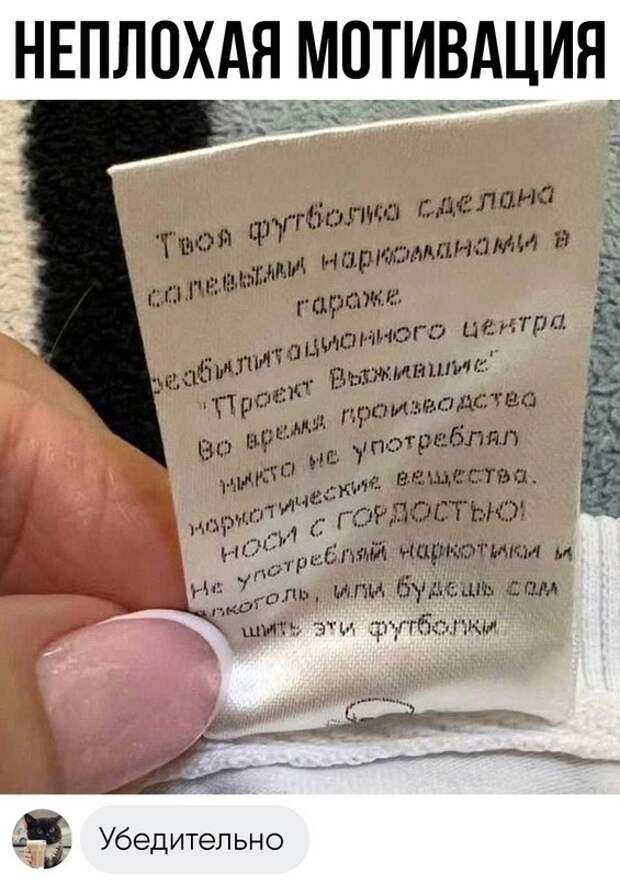 НЕПЛОХАЯ МОТИВАЦИЯ
Твоя футболка сделана
солевыми наркоманами в
гараже
реабилитационного центра
"Проект Выжившие"
Во время производства
никто не употреблял
наркотические вещества.
НОСИ С ГОРДОСТЬЮ!
Не употребляй наркотики и
алкоголь, или будешь сам
шить эти футболки
Убедительно